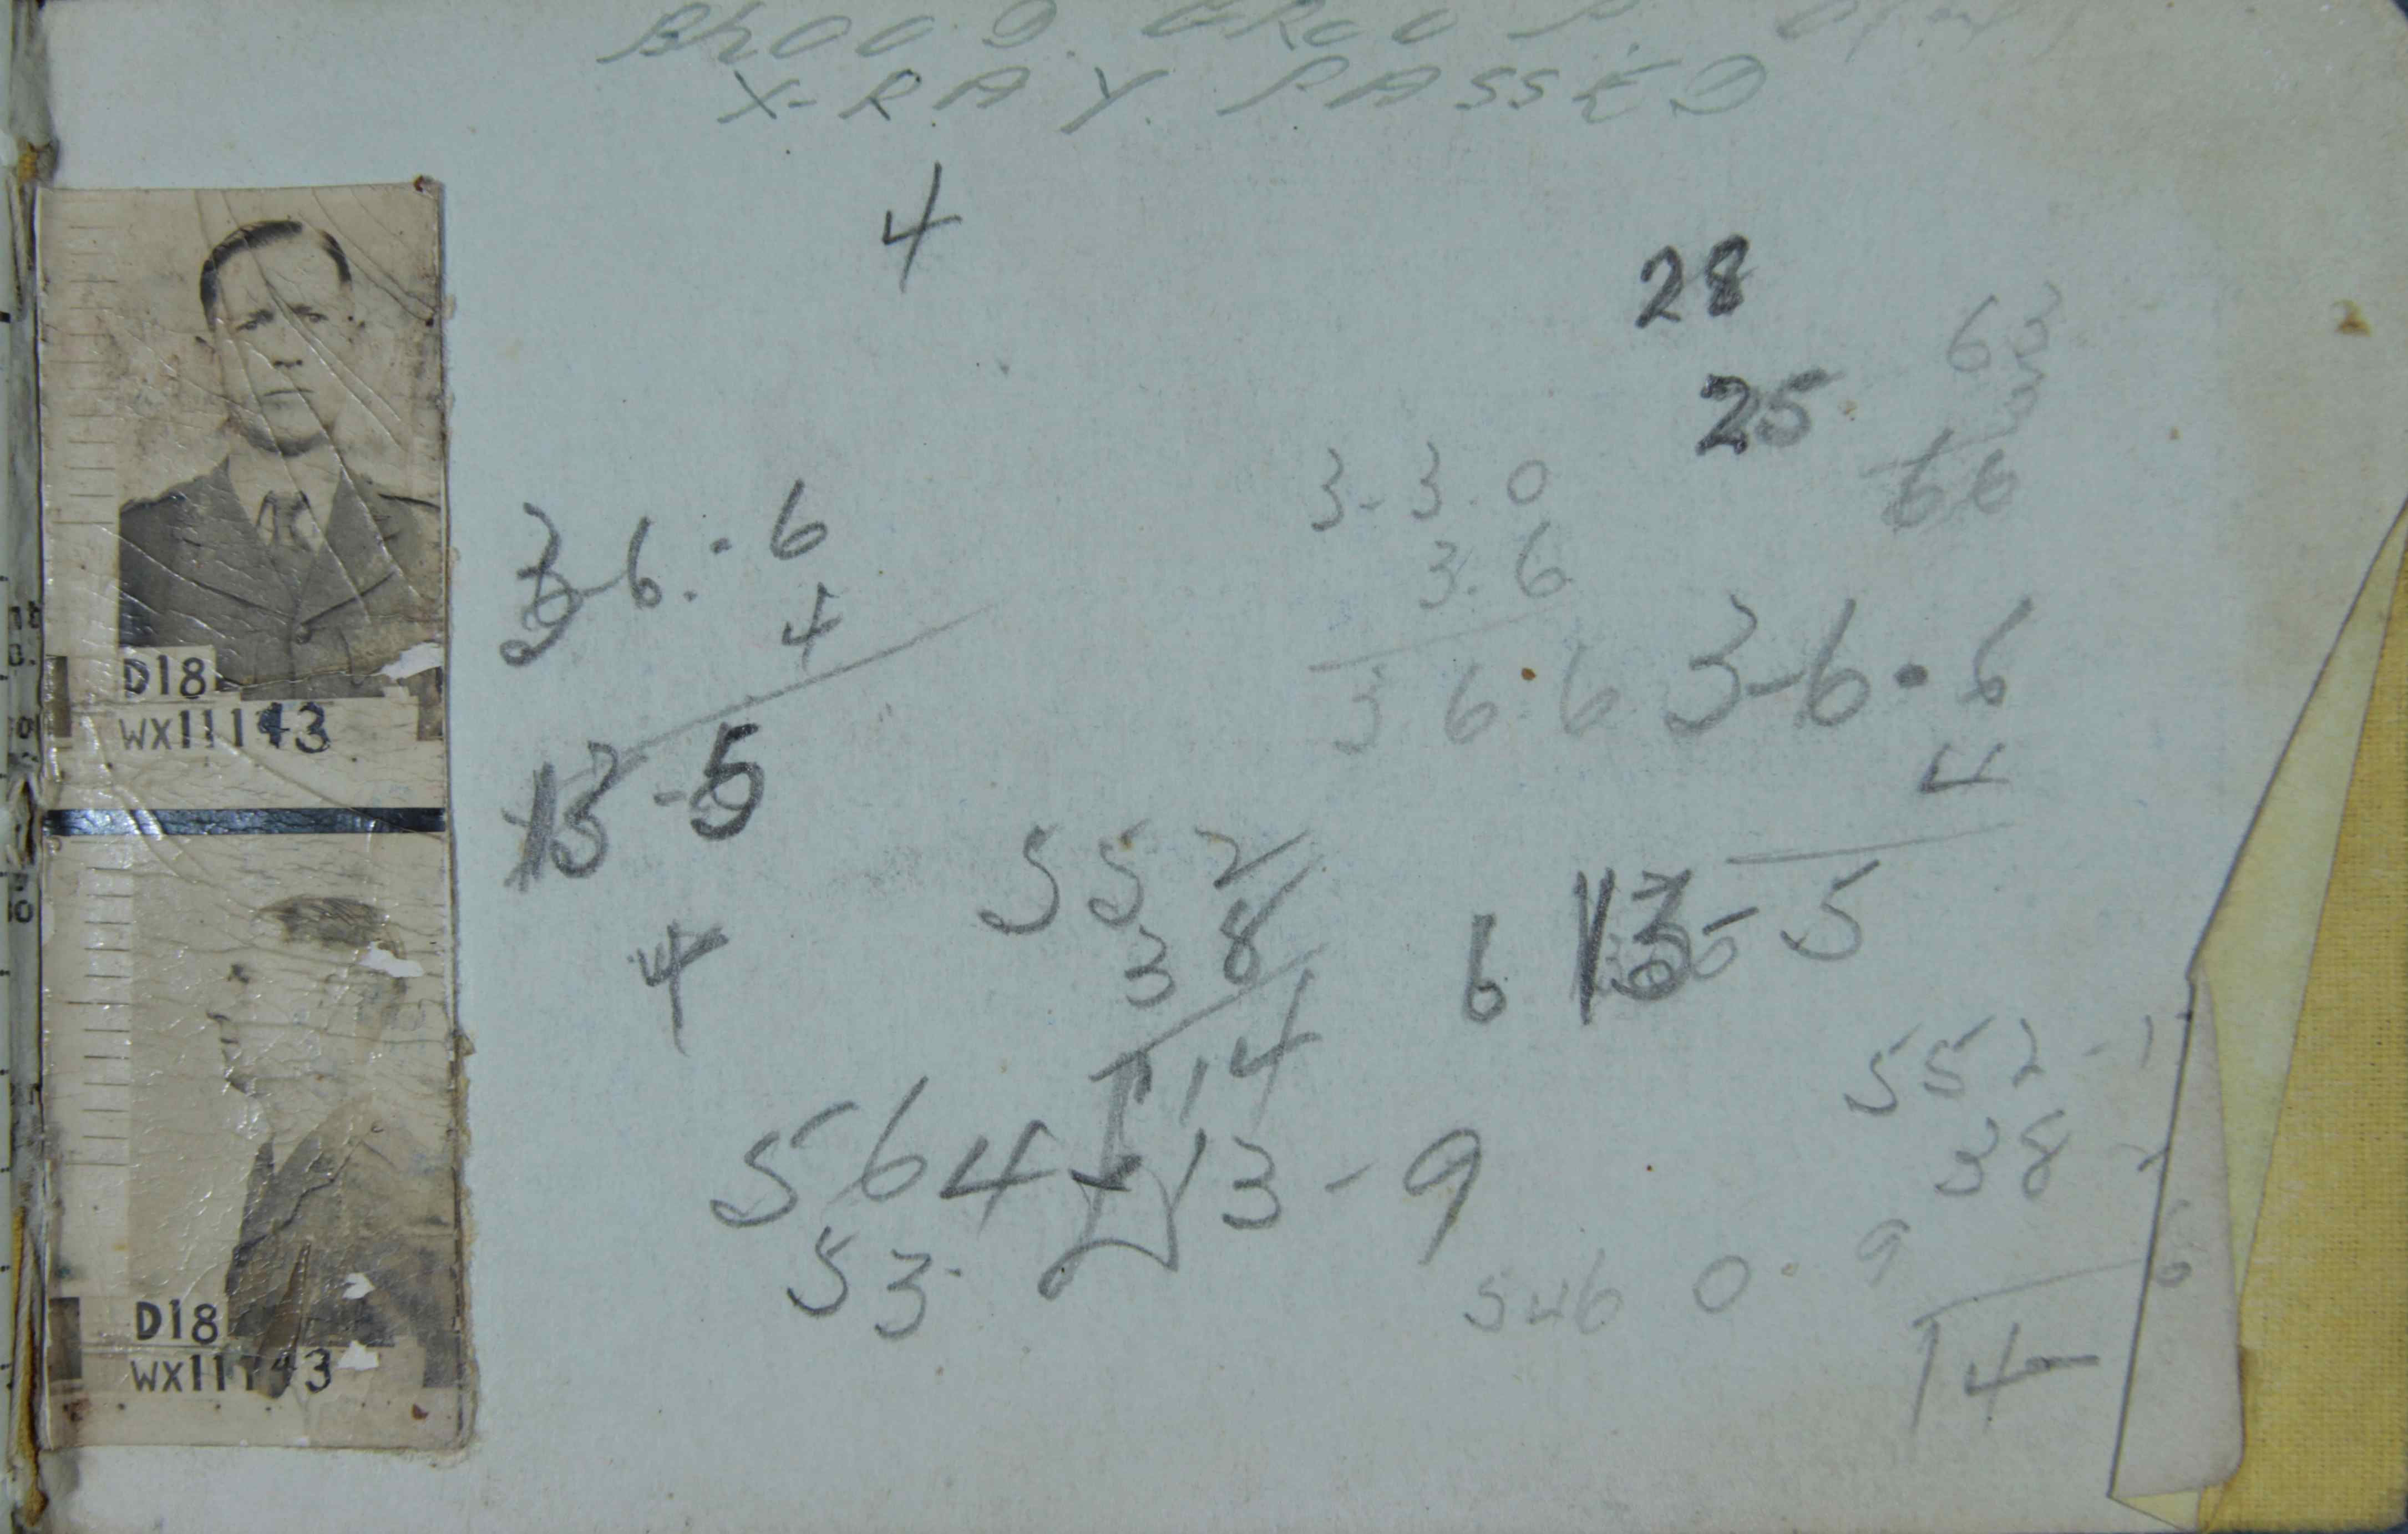 BLOOD GROUP
X-RAY PASSED
4
28
25
63
3
66
3-3.0
3.6
3 6.6
3-6.6
4
13-5
4
3-6.6
4
13-5
6
D18
WX11143
552
38
14
564-13-9
53
552-1
38
546 0.9
6
14
D18
WX11143